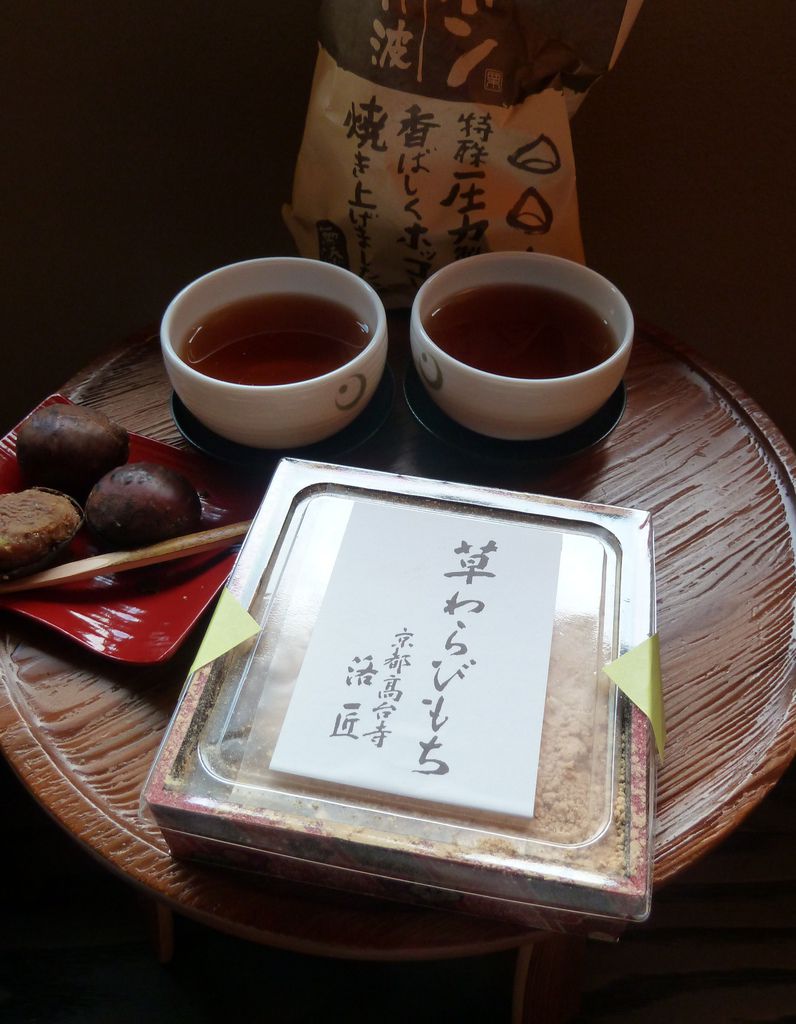 ポン
丹波
特殊圧力
香ばしくホッコ
焼き上げました
草わらびもち
京都高台寺
洛匠